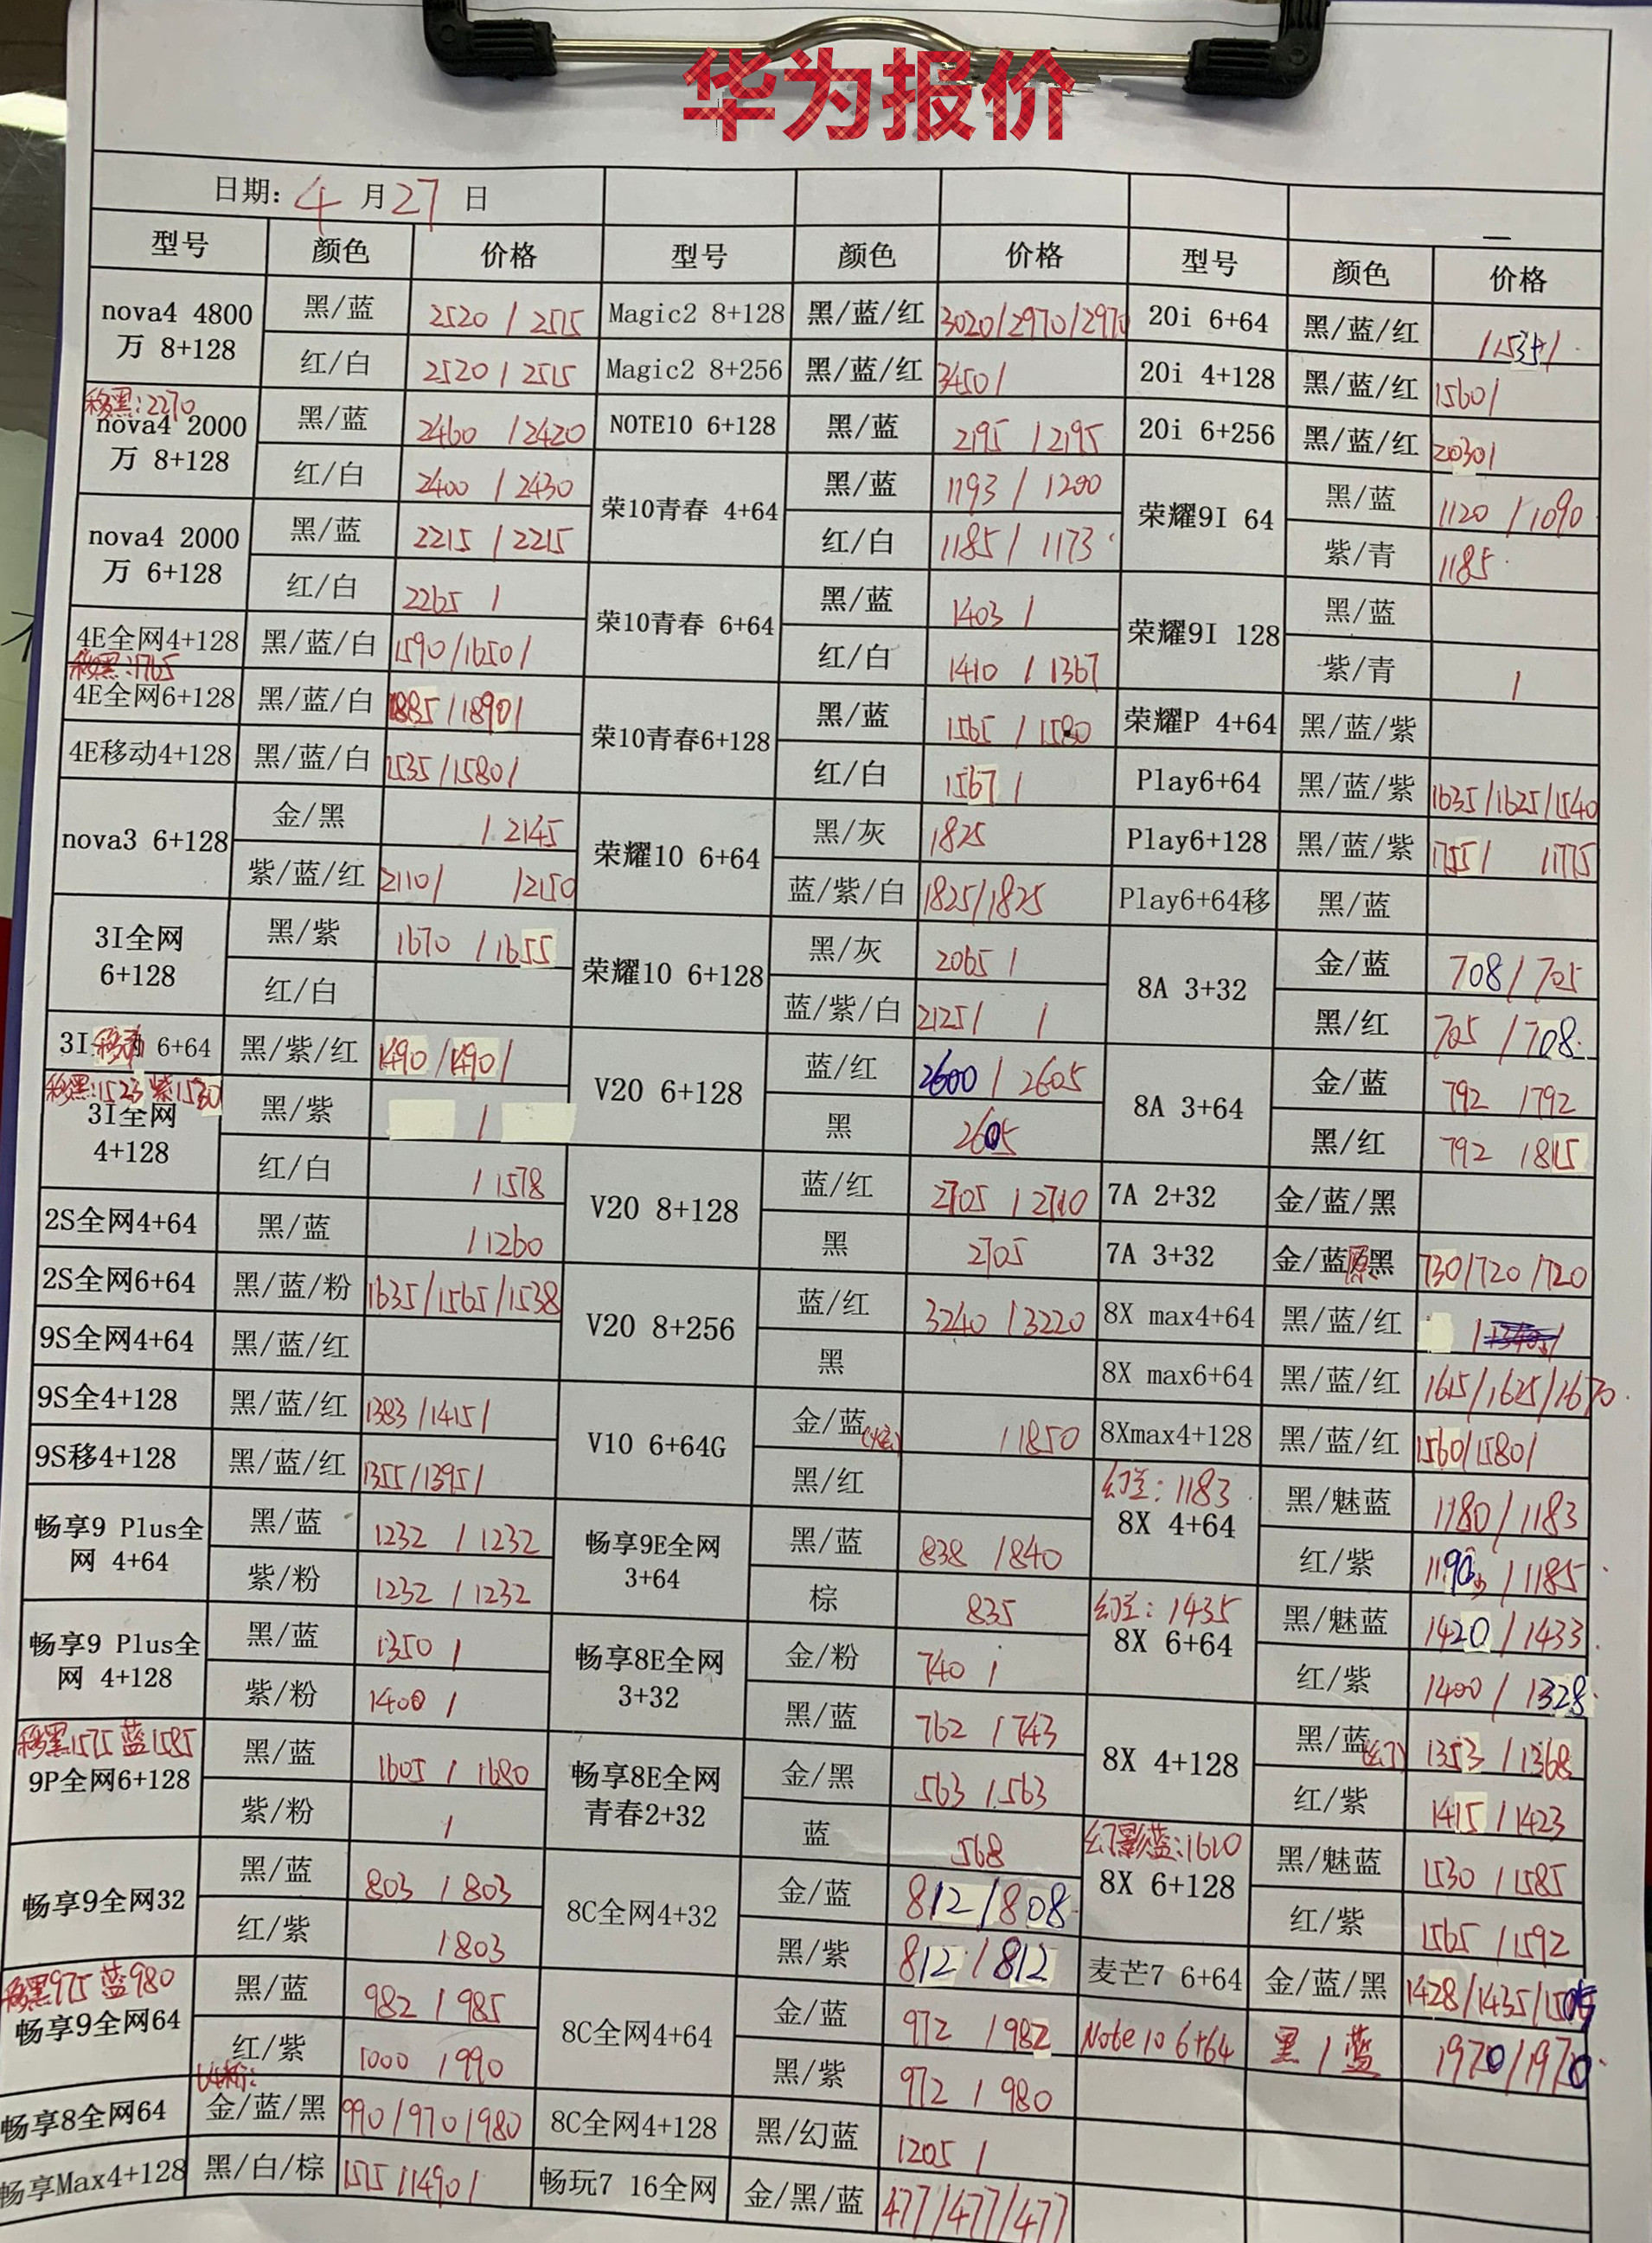 华为报价
日期: 4 月 27 日
型号 颜色 价格 型号 颜色 价格 型号 颜色 价格
nova4 4800万 8+128 黑/蓝 2520 / 2515 Magic2 8+128 黑/蓝/红 3020/2970/2970 20i 6+64 黑/蓝/红 /1535/
红/白 2520 / 2515 Magic2 8+256 黑/蓝/红 3450/ 20i 4+128 黑/蓝/红 1560/
移黑:2270
nova4 2000万 8+128 黑/蓝 2460 / 2420 NOTE10 6+128 黑/蓝 2195 / 2195 20i 6+256 黑/蓝/红 2030/
红/白 2400 / 2430 荣10青春 4+64 黑/蓝 1193 / 1200 荣耀9I 64 黑/蓝 1120 / 1090
nova4 2000万 6+128 黑/蓝 2215 / 2215 红/白 1185 / 1173 紫/青 1185
红/白 2265 / 荣10青春 6+64 黑/蓝 1403 / 荣耀9I 128 黑/蓝
4E全网4+128 黑/蓝/白 1590/1650/ 红/白 1410 / 1367 紫/青 /
移黑:1765
4E全网6+128 黑/蓝/白 1885/1890/ 荣10青春6+128 黑/蓝 1565 / 1580 荣耀P 4+64 黑/蓝/紫
4E移动4+128 黑/蓝/白 1535/1580/ 红/白 1567 / Play6+64 黑/蓝/紫 1635/1625/1540
nova3 6+128 金/黑 / 2145 荣耀10 6+64 黑/灰 1825 Play6+128 黑/蓝/紫 1755/ /1775
紫/蓝/红 2110/ /2150 蓝/紫/白 1825/1825 Play6+64移 黑/蓝
3I全网 6+128 黑/紫 1670 / 1655 荣耀10 6+128 黑/灰 2065 / 8A 3+32 金/蓝 708/705
红/白 蓝/紫/白 2125/ / 黑/红 705/708
3I移动 6+64 黑/紫/红 1490/1490/ V20 6+128 蓝/红 2600 / 2605 8A 3+64 金/蓝 792 / 792
移黑:1523 紫1530
3I全网 4+128 黑/紫 / 黑 2605 黑/红 792 / 815
红/白 / 1578 V20 8+128 蓝/红 2705 / 2710 7A 2+32 金/蓝/黑
2S全网4+64 黑/蓝 / 1260 黑 2705 7A 3+32 金/蓝黑 730/720/720
2S全网6+64 黑/蓝/粉 1635/1565/1538 V20 8+256 蓝/红 3240 / 3220 8X max4+64 黑/蓝/红 / /
9S全网4+64 黑/蓝/红 黑 8X max6+64 黑/蓝/红 1615/1625/1670
9S全4+128 黑/蓝/红 1383/1415/ V10 6+64G 金/蓝 / 1850 8Xmax4+128 黑/蓝/红 1560/1580/
9S移4+128 黑/蓝/红 1355/1395/ 黑/红 幻兰: 1183
8X 4+64 黑/魅蓝 1180/1183
畅享9 Plus全网 4+64 黑/蓝 1232 / 1232 畅享9E全网 3+64 黑/蓝 838 / 840 红/紫 1190 / 1185
紫/粉 1232 / 1232 棕 835 幻兰: 1435
8X 6+64 黑/魅蓝 1420/1433
畅享9 Plus全网 4+128 黑/蓝 1350 / 畅享8E全网 3+32 金/粉 740 / 红/紫 1400 / 1328
紫/粉 1400 / 黑/蓝 762 / 743 8X 4+128 黑/蓝(幻) 1353 / 1368
移黑1575 蓝1585
9P全网6+128 黑/蓝 1605 / 1680 畅享8E全网青春2+32 金/黑 563 / 563 红/紫 1415 / 1423
紫/粉 / 蓝 568 幻影蓝:1610
8X 6+128 黑/魅蓝 1530 / 1585
畅享9全网32 黑/蓝 803 / 803 8C全网4+32 金/蓝 812/808 红/紫 1565 / 1592
红/紫 / 803 黑/紫 812 / 812 麦芒7 6+64 金/蓝/黑 1428/1435/1505
移黑975 蓝980
畅享9全网64 黑/蓝 982 / 985 8C全网4+64 金/蓝 972 / 982 Note 10 6+64 黑 / 蓝 1970/1970
红/紫 1000 / 990 黑/紫 972 / 980
畅享8全网64 金/蓝/黑 990/970/980 8C全网4+128 黑/幻蓝 1205 /
畅享Max4+128 黑/白/棕 1515/1490/ 畅玩7 16全网 金/黑/蓝 477/477/477